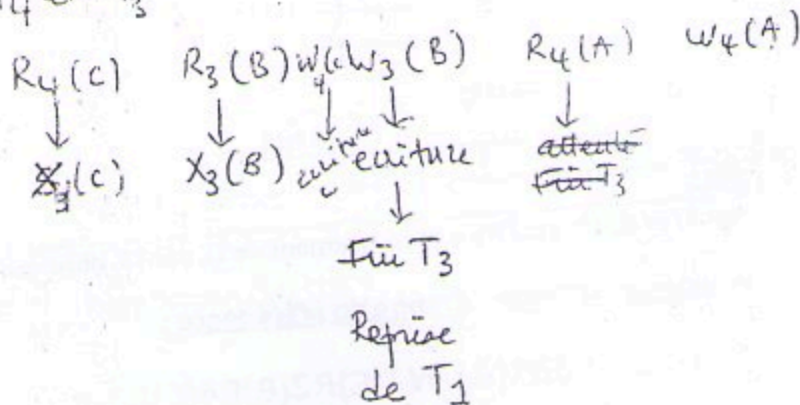 4 3
R4(C) R3(B) W4(C W3(B) R4(A) W4(A)
X3(C) X3(B) ecriture ecriture attente
Fin T3
Fin T3
Reprise
de T1